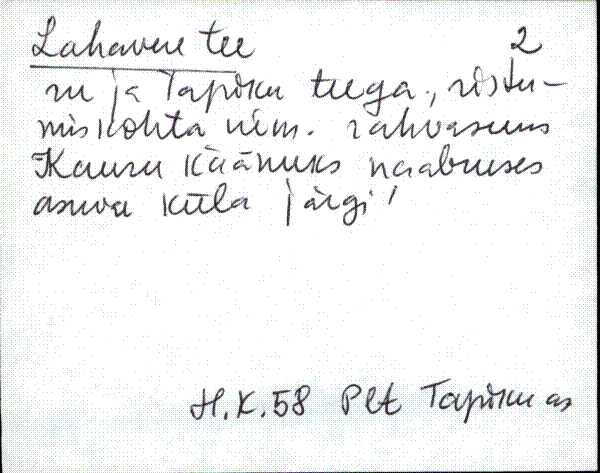 Lahavere tee 2
ru ja Tapiku teega, ristu-
miskohta nim. rahvasuus
Kauru käänuks naabruses
asuva küla järgi!
H.K. 58 Plt Tapiku as